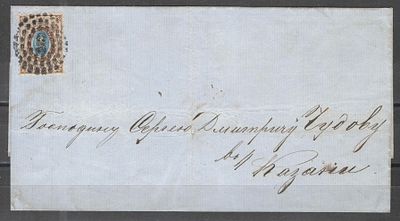 Господину Сергею Дмитричу Чудову
въ
Казани